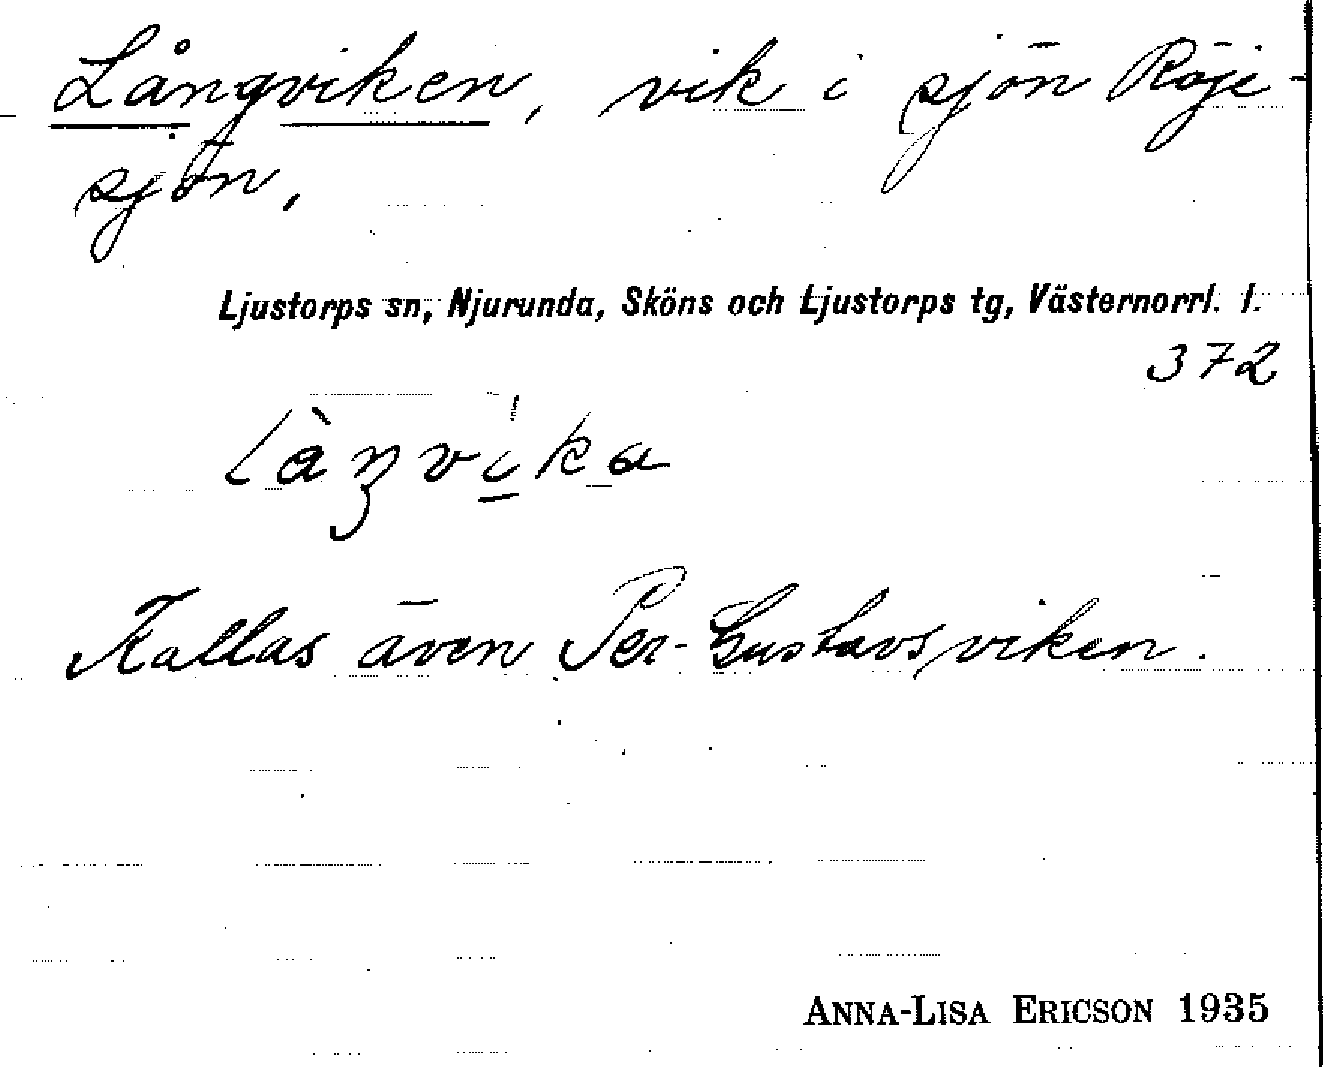 Långviken, vik i sjön Röje-
sjön,
Ljustorps sn, Njurunda, Sköns och Ljustorps tg, Västernorrl. l.
372
Kallas även Per-Gustavsviken.
ANNA-LISA ERICSON 1935